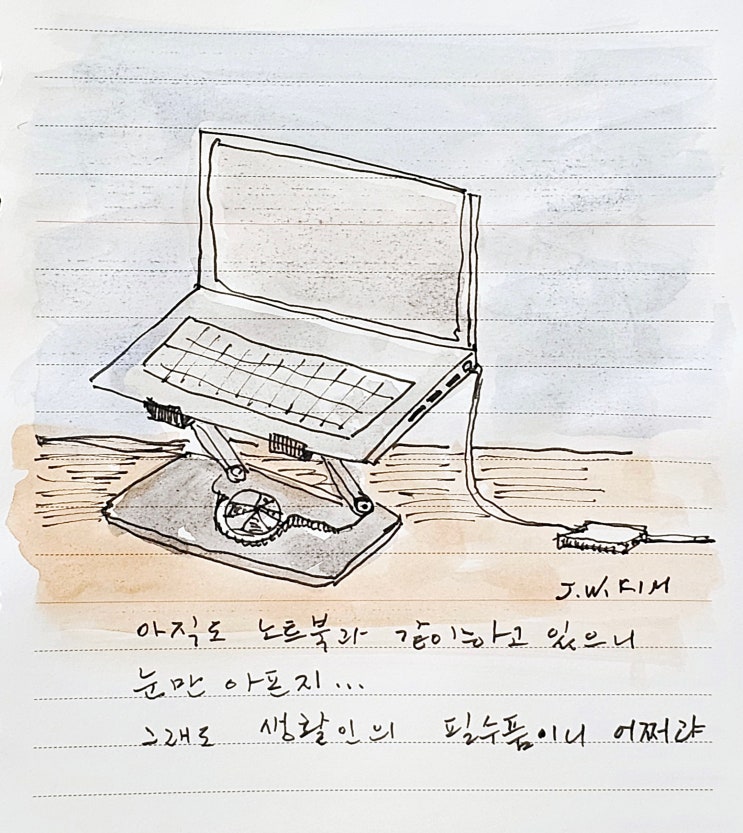 J.W.KIM
아직도 노트북과 같이하고 있으니
눈만 아프지...
그래도 생활인의 필수품이니 어쩌랴